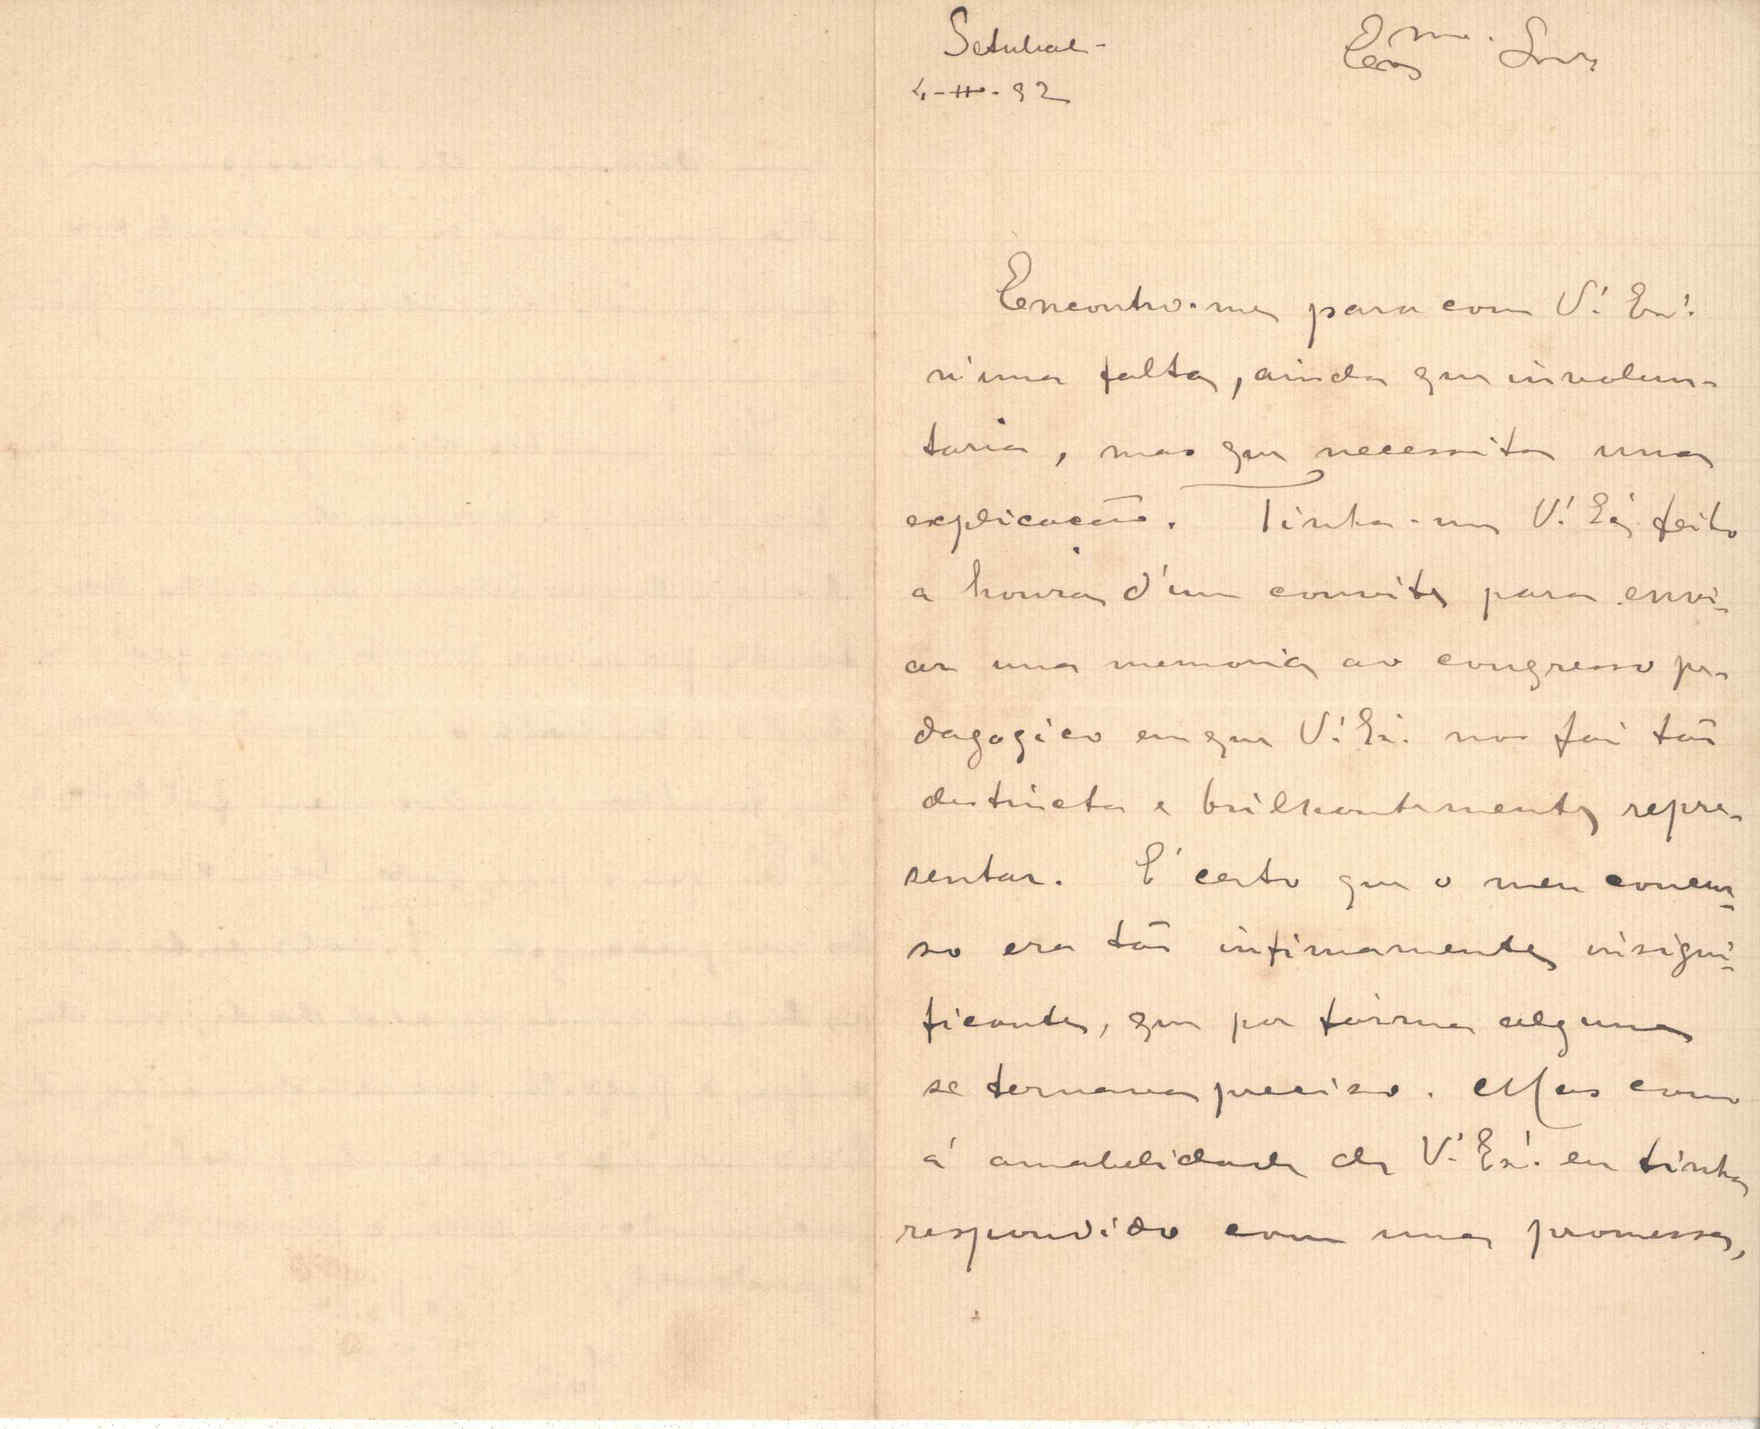 Setubal -
4-II-92
Ex.ma Snra
Encontro-me para com V.ª Ex.ª
n'uma falta, ainda que involun-
taria, mas que necessita uma
explicação. Tinha-me V.ª Ex.ª feito
a honra d'um convite para envi-
ar uma memoria ao congresso pe-
dagogico em que V.ª Ex.ª nos foi tão
destincta e brilhantemente repre-
sentar. É certo que o meu concur-
so era tão infimamente insigni-
ficante, que por fórma alguma
se tornava preciso. Mas como
á amabelidade de V.ª Ex.ª eu tinha
respondido com uma promessa,